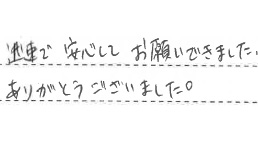 迅速で 安心して お願いできました.
ありがとうございました。